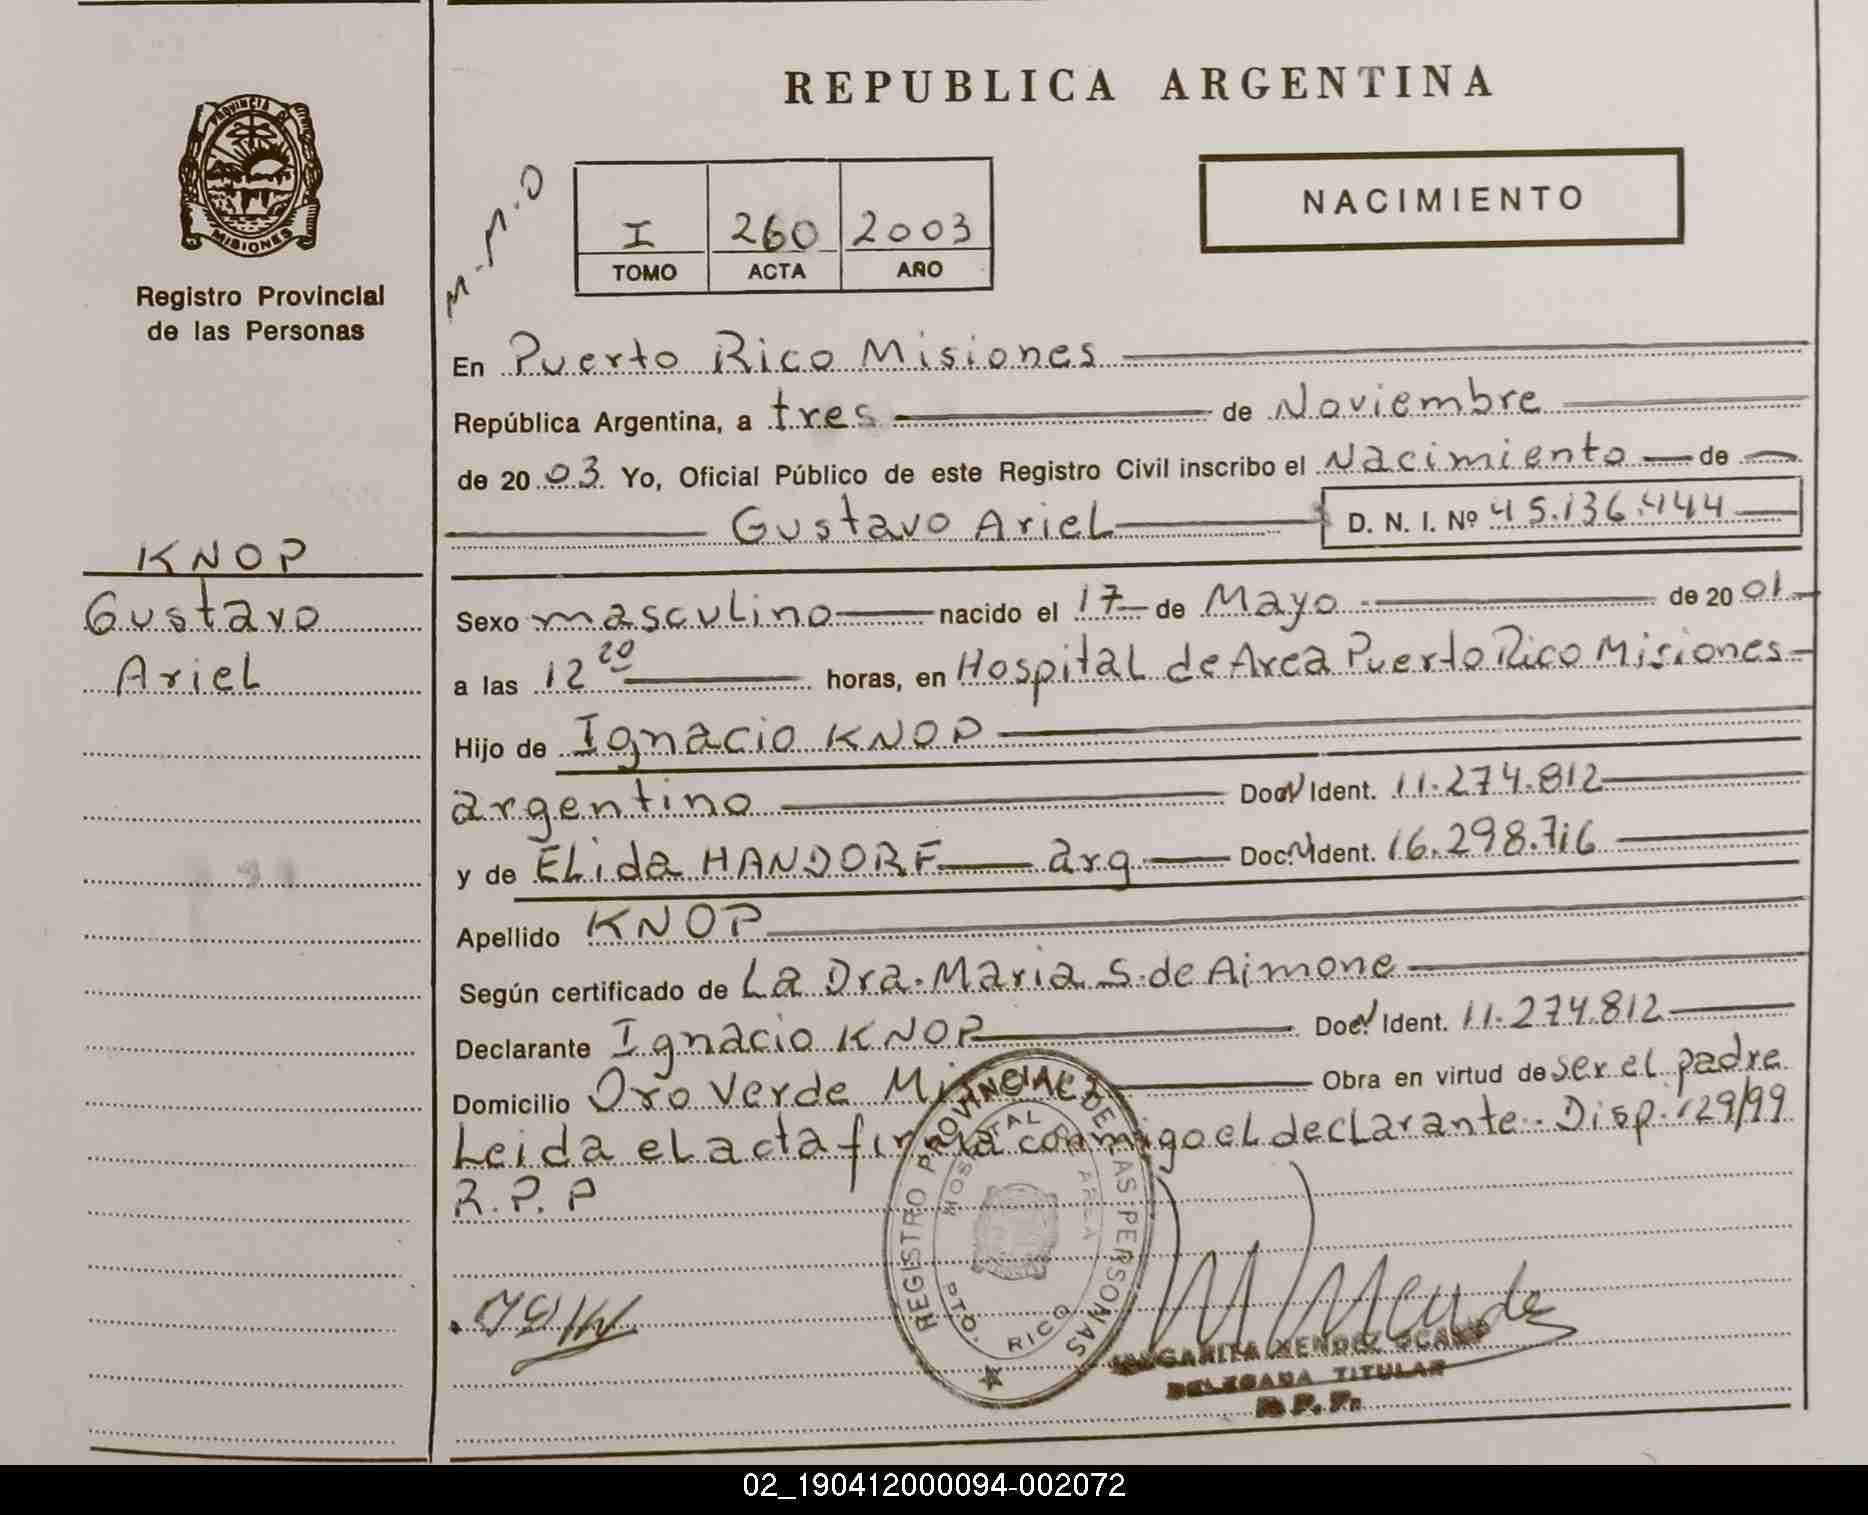 REPUBLICA ARGENTINA
PROVINCIA DE
MISIONES
Registro Provincial
de las Personas
M.M.O
I 260 2003
TOMO ACTA AÑO
NACIMIENTO
En Puerto Rico Misiones
República Argentina, a tres de Noviembre
de 2003 Yo, Oficial Público de este Registro Civil inscribo el Nacimiento de
Gustavo Ariel D. N. I. Nº 45.136.444
KNOP
Gustavo
Ariel
Sexo masculino nacido el 17 de Mayo de 2001
a las 12 20 horas, en Hospital de Area Puerto Rico Misiones
Hijo de Ignacio KNOP
argentino Doc. Ident. 11.274.812
y de ELida HANDORF arg Doc. Ident. 16.298.716
Apellido KNOP
Según certificado de La Dra. Maria S. de Aimone
Declarante Ignacio KNOP Doc. Ident. 11.274.812
Domicilio Oro Verde Obra en virtud de ser el padre
Leida el acta firma conmigo el declarante. Disp. 129/99
R.P.P
REGISTRO PROVINCIAL DE LAS PERSONAS
HOSPITAL DE AREA
PTO. RICO
MARGARITA MENDEZ OCAMPO
DELEGADA TITULAR
R. P. P.
02_190412000094-002072